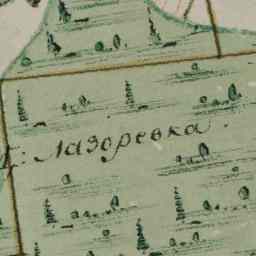 Лазоревка